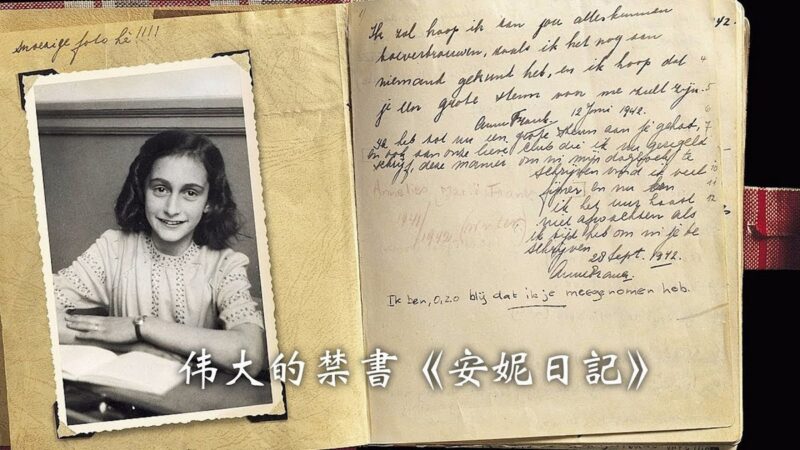 Snoezige foto hè!!!!
42.
Ik zal hoop ik aan jou alles kunnen
toevertrouwen, zoals ik het nog aan
niemand gekund heb, en ik hoop dat
je een grote steun voor me zult zijn.
Anne Frank. 12 Juni 1942.
Ik heb tot nu een grote steun aan je gehad,
en ook aan onze lieve club die ik nu geregeld
schrijf, deze manier om in mijn dagboek te
schrijven vind ik veel
fijner en nu kan
ik het uur haast
niet afwachten als
ik tijd heb om in je te
schrijven
28 Sept. 1942.
Anne Frank.
Ik ben, o, zo blij dat ik je meegenomen heb.
伟大的禁書《安妮日記》